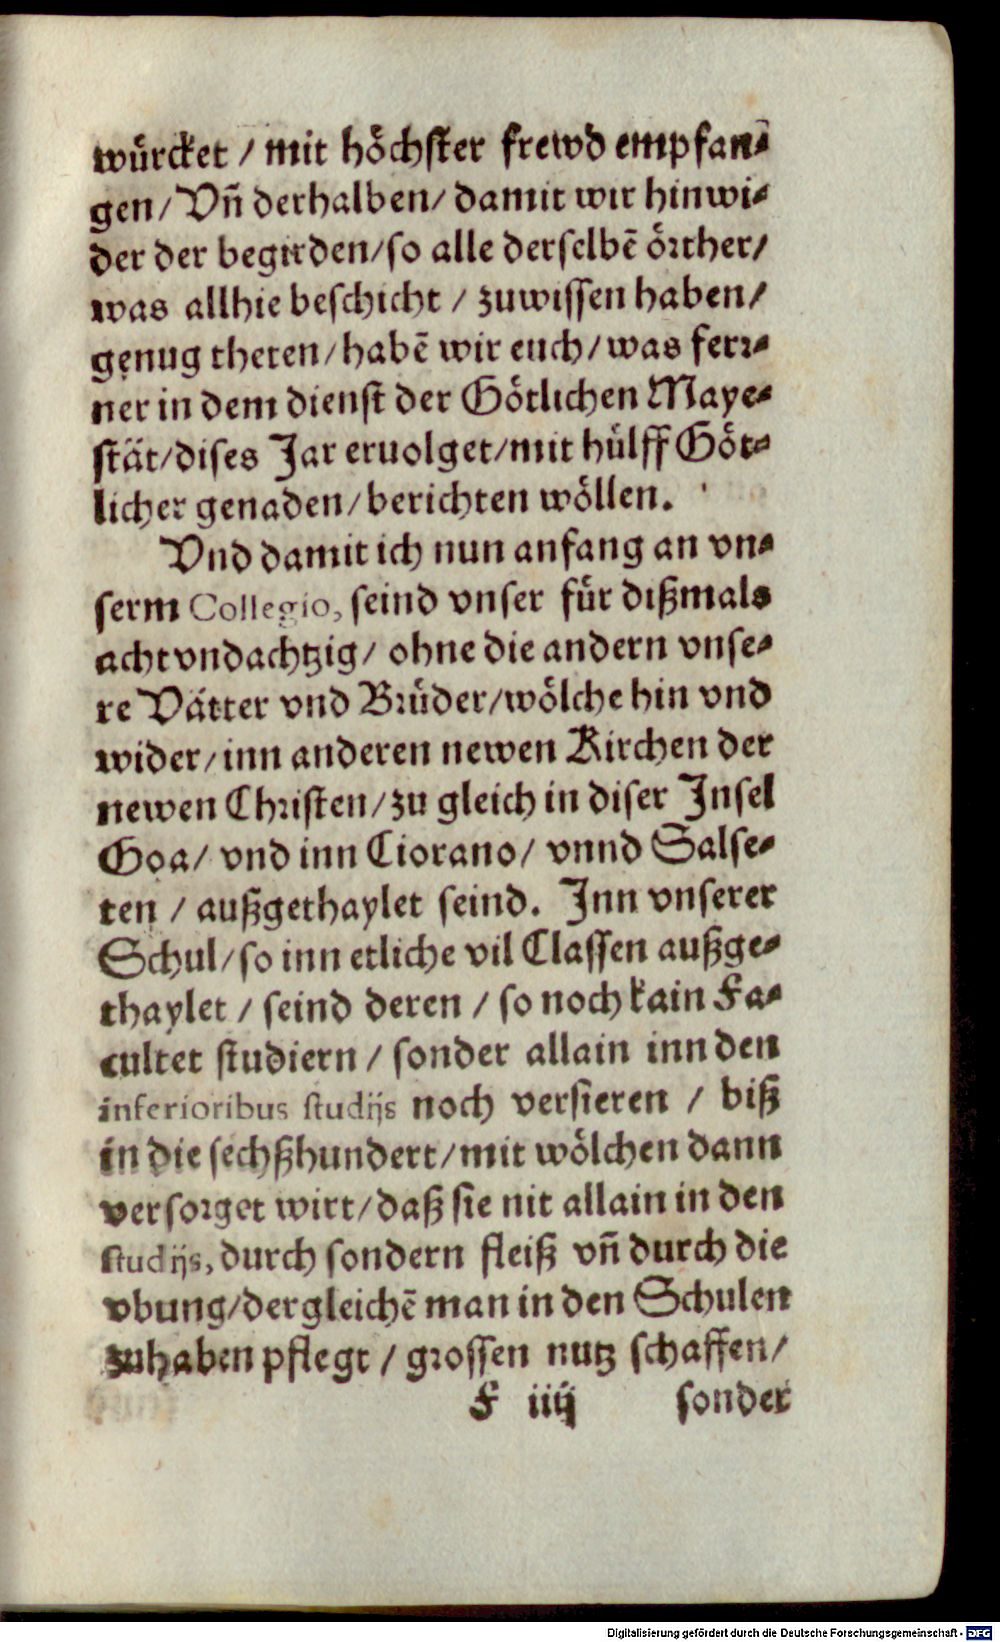 würcket / mit höchster frewd empfan⸗
gen / Vñ derhalben / damit wir hinwi⸗
der der begirden / so alle derselbẽ örther /
was allhie beschicht / zuwissen haben /
genug theten / habẽ wir euch / was ferr⸗
ner in dem dienst der Götlichen Maye⸗
stät / dises Jar eruolget / mit hülff Göt⸗
licher genaden / berichten wöllen.
Vnd damit ich nun anfang an vn⸗
serm Collegio, seind vnser für dißmals
acht vndachtzig / ohne die andern vnse⸗
re Vätter vnd Brüder / wölche hin vnd
wider / inn anderen newen Kirchen der
newen Christen / zu gleich in diser Insel
Goa / vnd inn Ciorano / vnnd Salse⸗
ten / außgethaylet seind. Inn vnserer
Schul / so inn etliche vil Classen außge⸗
thaylet / seind deren / so noch kain Fa⸗
cultet studiern / sonder allain inn den
inferioribus studijs noch versieren / biß
in die sechßhundert / mit wölchen dann
versorget wirt / daß sie nit allain in den
studijs, durch sondern fleiß vñ durch die
vbung / dergleichẽ man in den Schulen
zuhaben pflegt / grossen nutz schaffen /
F iiij sonder
Digitalisierung gefördert durch die Deutsche Forschungsgemeinschaft - DFG